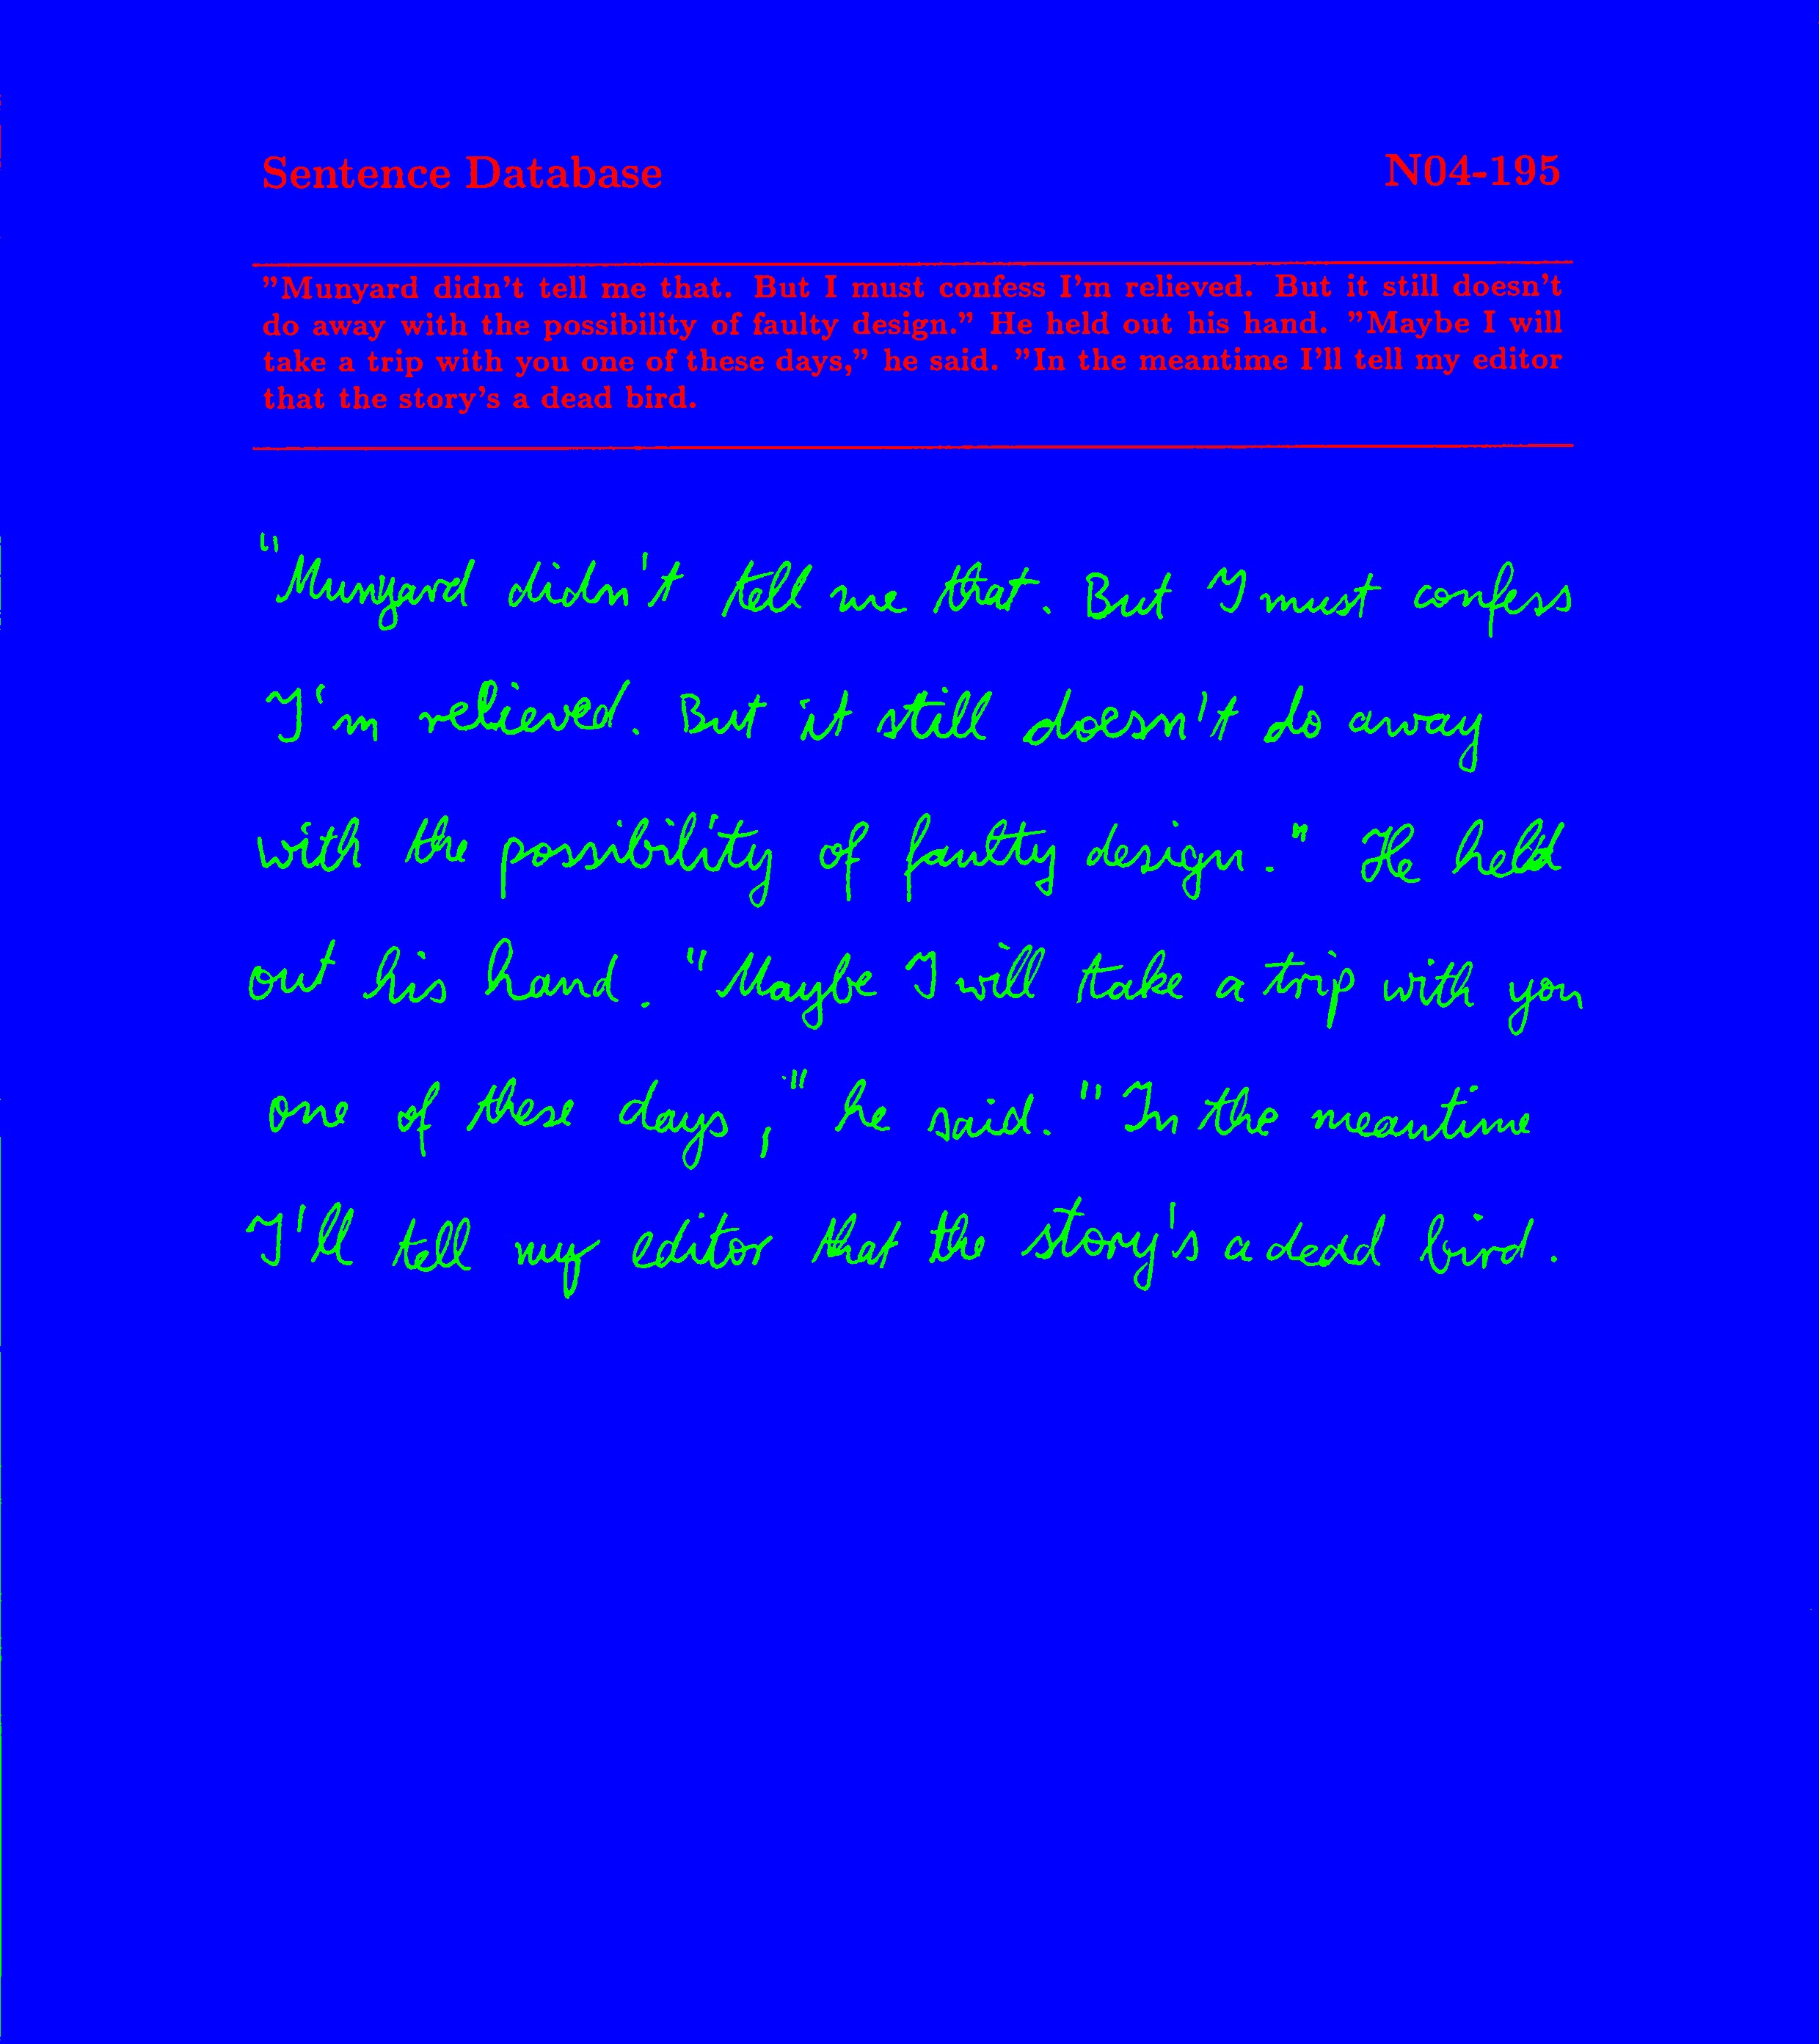 Sentence Database N04-195
"Munyard didn't tell me that. But I must confess I'm relieved. But it still doesn't
do away with the possibility of faulty design." He held out his hand. "Maybe I will
take a trip with you one of these days," he said. "In the meantime I'll tell my editor
that the story's a dead bird.
"Munyard didn't tell me that. But I must confess
I'm relieved. But it still doesn't do away
with the possibility of faulty design." He held
out his hand. "Maybe I will take a trip with you
one of these days," he said. "In the meantime
I'll tell my editor that the story's a dead bird.